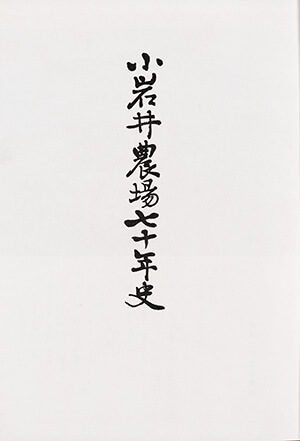 小岩井農場七十年史